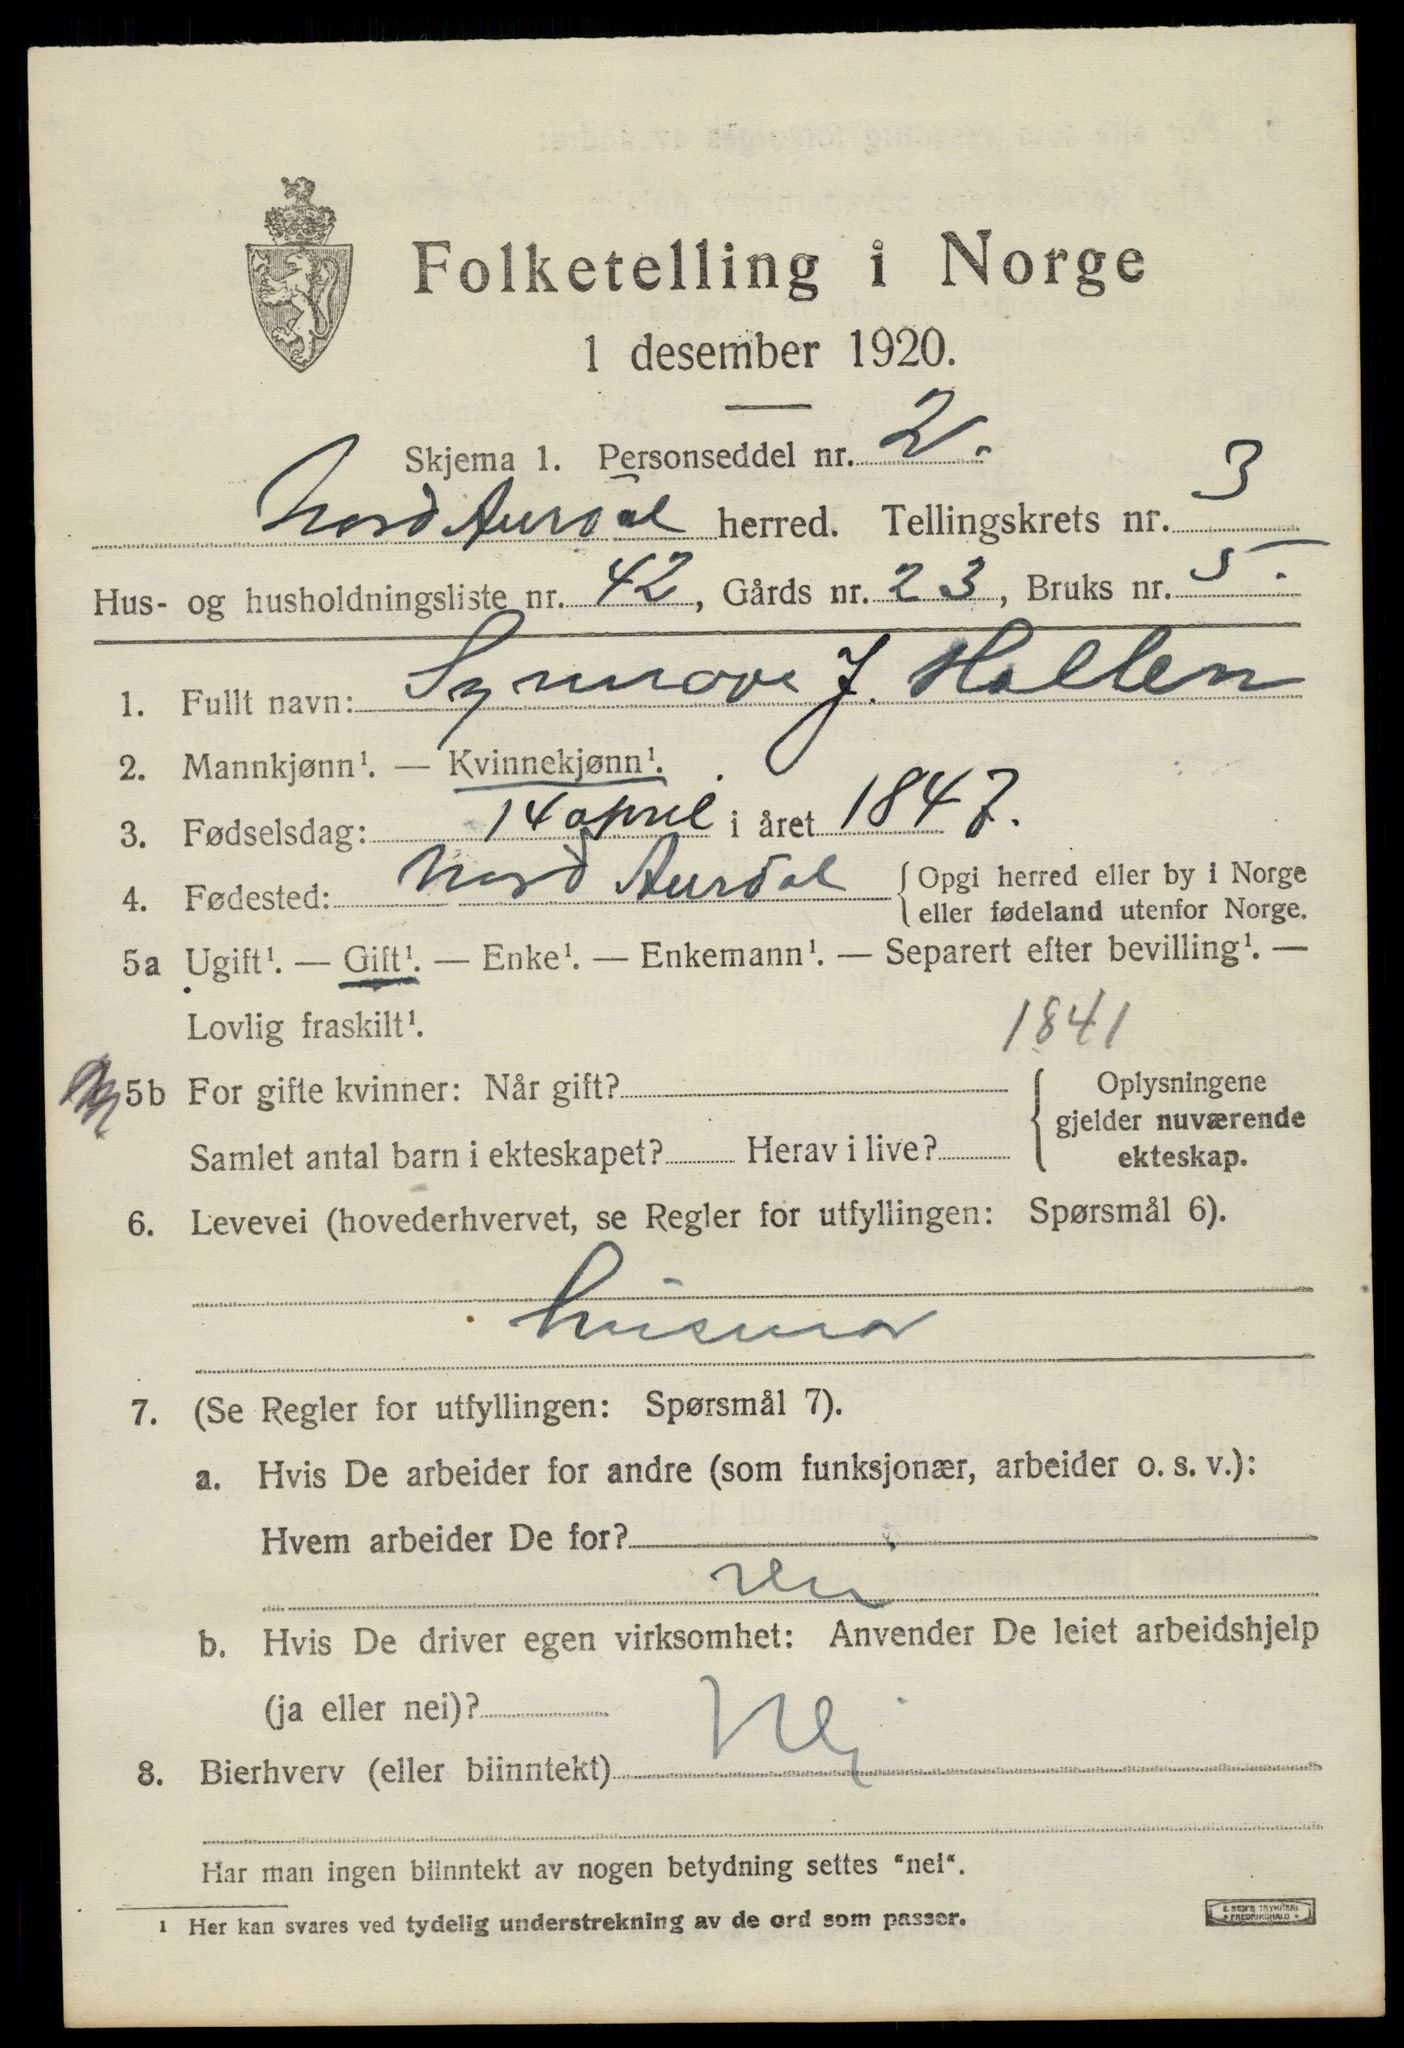 Folketelling i Norge
1 desember 1920.
Skjema 1. Personseddel nr. 2.
Nord Aurdal herred. Tellingskrets nr. 3
Hus- og husholdningsliste nr. 42, Gårds nr. 23, Bruks nr. 5.
1. Fullt navn: Synnøve J. Hallen
2. Mannkjønn¹. — Kvinnekjønn¹.
3. Fødselsdag: 14 april i året 1847.
4. Fødested: Nord Aurdal { Opgi herred eller by i Norge
eller fødeland utenfor Norge.
5a Ugift¹. — Gift¹. — Enke¹. — Enkemann¹. — Separert efter bevilling¹. —
Lovlig fraskilt¹.
1841
5b For gifte kvinner: Når gift? { Oplysningene
gjelder nuværende
Samlet antal barn i ekteskapet? Herav i live? ekteskap.
6. Levevei (hovederhvervet, se Regler for utfyllingen: Spørsmål 6).
husmor
7. (Se Regler for utfyllingen: Spørsmål 7).
a. Hvis De arbeider for andre (som funksjonær, arbeider o. s. v.):
Hvem arbeider De for?
b. Hvis De driver egen virksomhet: Anvender De leiet arbeidshjelp
(ja eller nei)?
Nej
8. Bierhverv (eller biinntekt)
Har man ingen biinntekt av nogen betydning settes "nei".
1 Her kan svares ved tydelig understrekning av de ord som passer.
E. SEM'S TRYKKERI
FREDRIKSHALD